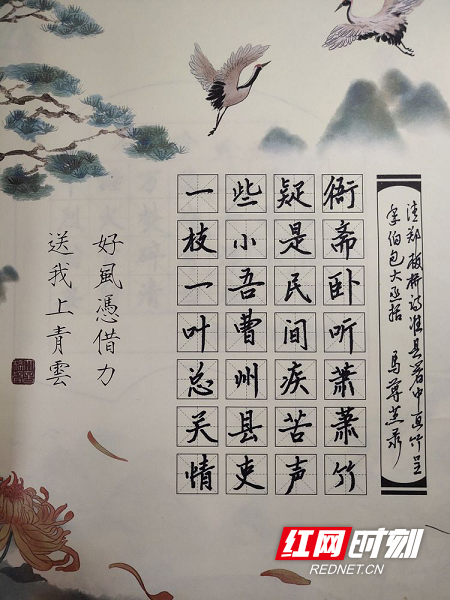 清郑板桥诗潍县署中画竹呈
年伯包大丞括 马
衙斋卧听萧萧竹
疑是民间疾苦声
些小吾曹州县吏
一枝一叶总关情
好風憑借力
送我上青雲
红网时刻
REDNET.CN